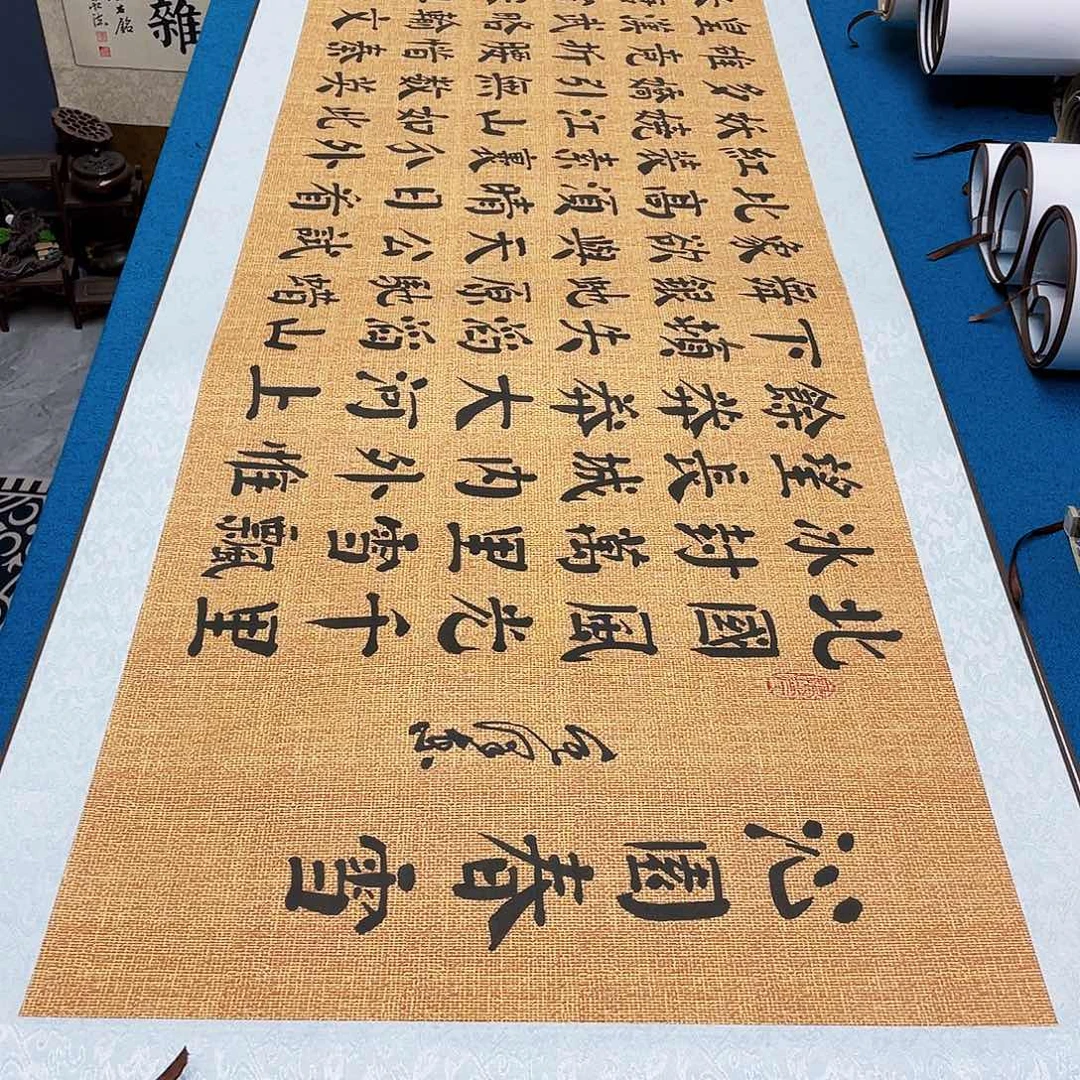 沁園春雪
北國風光千里
冰封萬里雪飄
望長城内外惟
餘莽莽大河上
下頓失滔滔山
舞銀蛇原馳蜡
象欲與天公試
比高須晴日看
紅裝素裹分外
妖嬈江山如此
多嬌引無數英
雄競折腰惜秦
皇漢武略輸文
雜